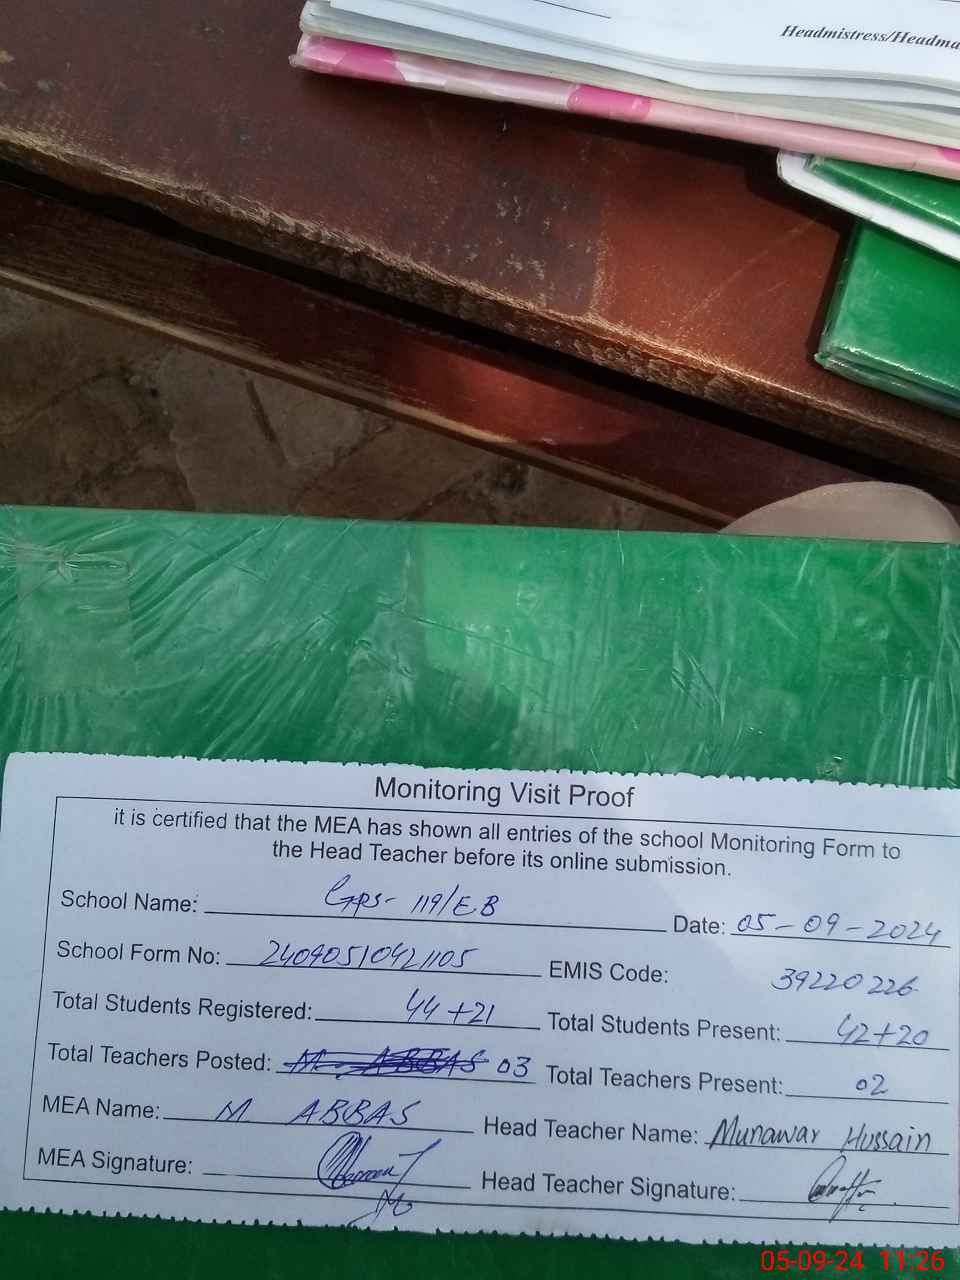 Headmistress/Headma
Monitoring Visit Proof
it is certified that the MEA has shown all entries of the school Monitoring Form to
the Head Teacher before its online submission.
School Name: GPS- 119/EB Date: 05-09-2024
School Form No: 24090510421105 EMIS Code: 39220226
Total Students Registered: 44+21 Total Students Present: 42+20
Total Teachers Posted: M. ABBAS 03 Total Teachers Present: 02
MEA Name: M ABBAS Head Teacher Name: Munawar Hussain
MEA Signature: Head Teacher Signature:
05-09-24 11:26